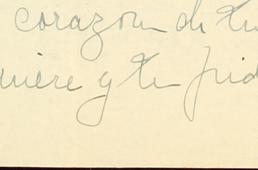 corazon de tu
uiere y te pid